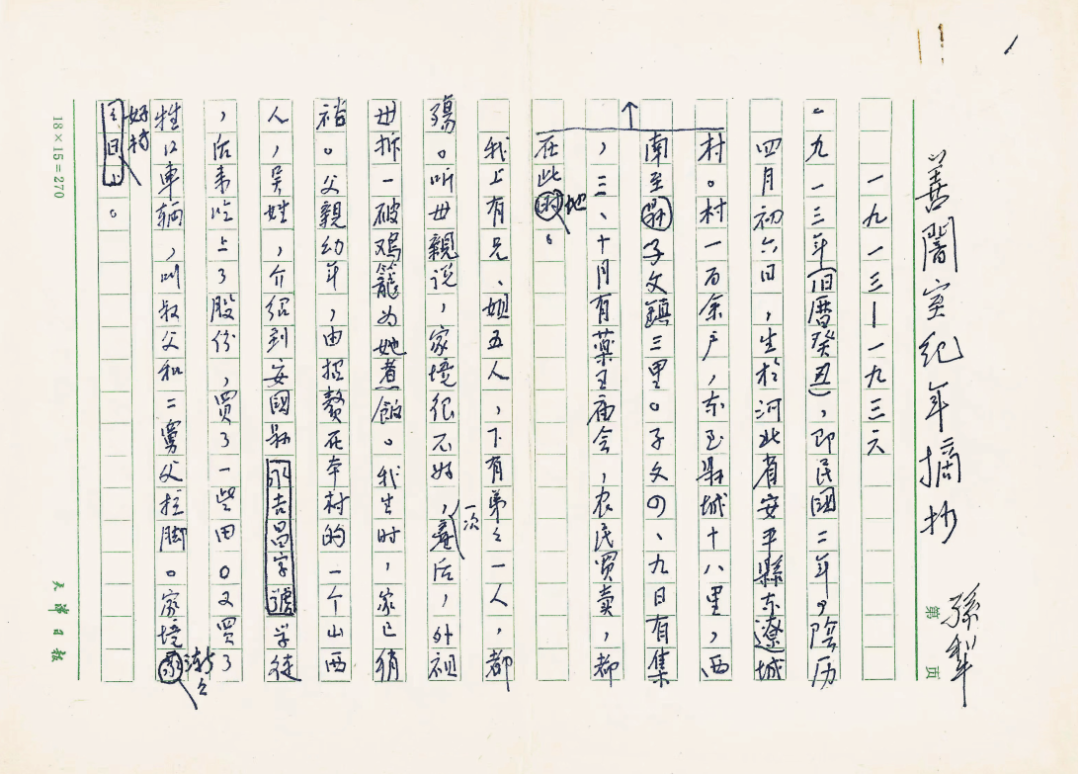 1
善闇室纪年摘抄
孫犁
第 页
一九一三—一九三六
。九一三年(旧曆癸丑),即民國二年,陰历
四月初六日,生於河北省安平縣东遼城
村。村一百余户,东至县城十八里,西
南至子文鎮三里。子文四、九日有集
,三、十月有藥王庙会,农民買卖,都
在此地。
我上有兄、姐五人,下有弟々一人,都
殇。听母親说,家境很不好,一次產后,外祖
母拆一破鸡籠为她煮飯。我生时,家已稍
裕。父親幼年,由招赘在本村的一个山西
人,吴姓,介绍到安國县永吉昌字號学徒
,后来吃上了股份,買了一些田。又買了
牲口車辆,叫叔父和二舅父拉脚。家境渐々
好转。
18×15=270
天津日報